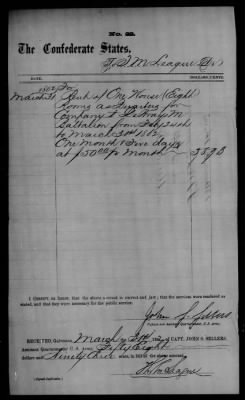 No. 22.
The Confederate States,
To T. M. League Dr
DATE. DOLLARS. CENTS.
1862 For
March 31 Rent of One House (Eight)
Rooms as Quarters for
Company
Battalion from Feby 24th
to March 30th 1862
One month & Five days
at $50 00 pr Month 58 93
I CERTIFY on honor, that the above account is correct and just; that the services were rendered as
stated, and that they were necessary for the public service.
John S. Sellers
RECEIVED, Galveston, March 31st 1862 of CAPT. JOHN S. SELLERS,
Assistant Quartermaster C. S. Army, Fifty Eight
dollars and Ninety Three cents, in full of the above account.
T. M. League
(Signed duplicates.)